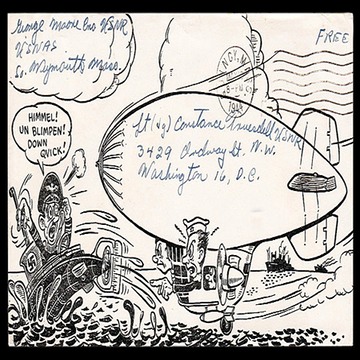 George Moore Ens USNR
USNAS
So. Weymouth Mass.
FREE
HIMMEL!
UN BLIMPEN!
DOWN
QUICK!
Lt (jg) Constance USNR
3429 Ordway St. N.W.
Washington 16, D.C.